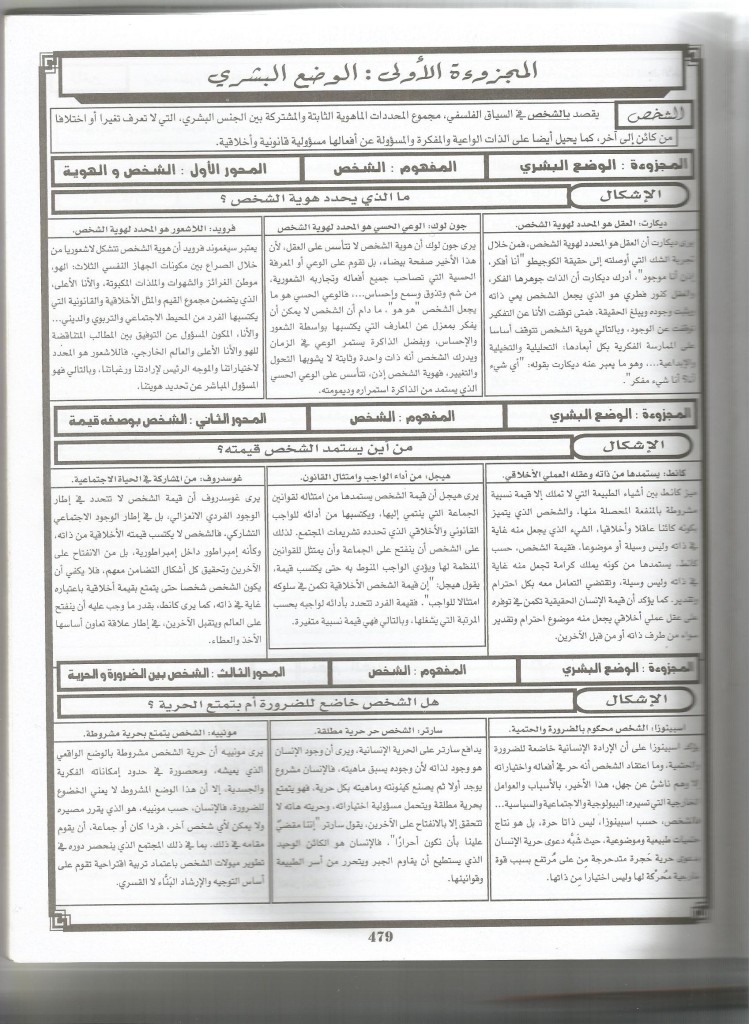 المجزوءة الأولى : الوضع البشري
الشخص
يقصد بالشخص في السياق الفلسفي، مجموع المحددات الماهوية الثابتة والمشتركة بين الجنس البشري، التي لا تعرف تغيرا أو اختلافا
من كائن إلى آخر، كما يحيل أيضا على الذات الواعية والمفكرة والمسؤولة عن أفعالها مسؤولية قانونية وأخلاقية.
المجزوءة : الوضع البشري
المفهوم : الشخص
المحور الأول : الشخص و الهوية
الإشكال
ما الذي يحدد هوية الشخص ؟
ديكارت: العقل هو المحدد لهوية الشخص.
يرى ديكارت أن العقل هو المحدد لهوية الشخص، فمن خلال
تجربة الشك التي أوصلته إلى حقيقة الكوجيطو "أنا أفكر،
إذن أنا موجود"، أدرك ديكارت أن الذات جوهرها الفكر،
والعقل كنور فطري هو الذي يجعل الشخص يعي ذاته
ويثبت وجوده ويبلغ الحقيقة. فمتى توقفت الأنا عن التفكير
توقفت عن الوجود، وبالتالي هوية الشخص تتوقف أساسا
على الممارسة الفكرية بكل أبعادها: التحليلية والتخيلية
والإبداعية....، وهو ما يعبر عنه ديكارت بقوله: "أي شيء
أنا؟ أنا شيء مفكر".
جون لوك: الوعي الحسي هو المحدد لهوية الشخص.
يرى جون لوك أن هوية الشخص لا تتأسس على العقل، لأن
هذا الأخير صفحة بيضاء، بل تقوم على الوعي أو المعرفة
الحسية التي تصاحب جميع أفعاله وتجاربه الشعورية،
من شم وتذوق وسمع وإحساس.... فالوعي الحسي هو ما
يجعل الشخص "هو هو". ما دام أن الشخص لا يمكن أن
يفكر بمعزل عن المعارف التي يكتسبها بواسطة الشعور
والإحساس، وبفضل الذاكرة يستمر الوعي في الزمان
ويدرك الشخص أنه ذات واحدة وثابتة لا يشوبها التحول
والتغيير، فهوية الشخص إذن، تتأسس على الوعي الحسي
الذي يستمد من الذاكرة استمراره وديمومته.
فرويد: اللاشعور هو المحدد لهوية الشخص.
يعتبر سيغموند فرويد أن هوية الشخص تتشكل لاشعوريا من
خلال الصراع بين مكونات الجهاز النفسي الثلاث: الهو،
موطن الغرائز والشهوات والملذات المكبوتة. والأنا الأعلى،
الذي يتضمن مجموع القيم والمثل الأخلاقية والقانونية التي
يكتسبها الفرد من المحيط الاجتماعي والتربوي والديني...
والأنا، المكون المسؤول عن التوفيق بين المطالب المتناقضة
للهو والأنا الأعلى والعالم الخارجي. فاللاشعور هو المحدد
لاختياراتنا والموجه الرئيس لإرادتنا ورغباتنا، وبالتالي فهو
المسؤول المباشر عن تحديد هويتنا.
المجزوءة : الوضع البشري
المفهوم : الشخص
المحور الثاني : الشخص بوصفه قيمة
الإشكال
من أين يستمد الشخص قيمته؟
كانط: يستمدها من ذاته وعقله العملي الأخلاقي.
ميز كانط بين أشياء الطبيعة التي لا تملك إلا قيمة نسبية
مشروطة بالمنفعة المحصلة منها، والشخص الذي يتميز
بكونه كائنا عاقلا وأخلاقيا، الشيء الذي يجعل منه غاية
في ذاته وليس وسيلة أو موضوعا. فقيمة الشخص، حسب
كانط، يستمدها من كونه يملك كرامة تجعل منه غاية
في ذاته وليس وسيلة، وتقتضي التعامل معه بكل احترام
وتقدير. كما يؤكد أن قيمة الإنسان الحقيقية تكمن في توفره
على عقل عملي أخلاقي يجعل منه موضوع احترام وتقدير
سواء من طرف ذاته أو من قبل الآخرين.
هيجل: من أداء الواجب وامتثال القانون.
يرى هيجل أن قيمة الشخص يستمدها من امتثاله لقوانين
الجماعة التي ينتمي إليها، ويكتسبها من أدائه للواجب
القانوني والأخلاقي الذي تحدده تشريعات المجتمع. لذلك
على الشخص أن ينفتح على الجماعة وأن يمتثل للقوانين
المنظمة لها ويؤدي الواجب المنوط به حتى يكتسب قيمة،
يقول هيجل: "إن قيمة الشخص الأخلاقية تكمن في سلوكه
امتثالا للواجب". فقيمة الفرد تتحدد بأدائه لواجبه بحسب
المرتبة التي يشغلها، وبالتالي فهي قيمة نسبية متغيرة.
غوسدروف: من المشاركة في الحياة الاجتماعية.
يرى غوسدروف أن قيمة الشخص لا تتحدد في إطار
الوجود الفردي الانعزالي، بل في إطار الوجود الاجتماعي
التشاركي، فالشخص لا يكتسب قيمته الأخلاقية من ذاته،
وكأنه إمبراطور داخل إمبراطورية، بل من الانفتاح على
الآخرين وتحقيق كل أشكال التضامن معهم، فلا يكفي أن
يكون الشخص شخصا حتى يتمتع بقيمة أخلاقية باعتباره
غاية في ذاته، كما يرى كانط، بقدر ما وجب عليه أن ينفتح
على العالم ويتقبل الآخرين، في إطار علاقة تعاون أساسها
الأخذ والعطاء.
المجزوءة : الوضع البشري
المفهوم : الشخص
المحور الثالث : الشخص بين الضرورة و الحرية
الإشكال
هل الشخص خاضع للضرورة أم يتمتع الحرية ؟
اسبينوزا: الشخص محكوم بالضرورة والحتمية.
يؤكد اسبينوزا على أن الإرادة الإنسانية خاضعة للضرورة
والحتمية، وما اعتقاد الشخص أنه حر في أفعاله واختياراته
إلا وهم ناشئ عن جهل، هذا الأخير، بالأسباب والعوامل
الخارجية التي تسيره: البيولوجية والاجتماعية والسياسية...
فالشخص، حسب اسبينوزا، ليس ذاتا حرة، بل هو نتاج
حتميات طبيعية وموضوعية، حيث شبَّه دعوى حرية الإنسان
بدعوى حرية حَجرة متدحرجة مِن على مُرتفع بسبب قوة
خارجية مُحرِّكة لها وليس اختيارا مِن ذاتها.
سارتر: الشخص حر حرية مطلقة.
يدافع سارتر على الحرية الإنسانية، ويرى أن وجود الإنسان
هو وجود لذاته لأن وجوده يسبق ماهيته. فالإنسان مشروع
يوجد أولا ثم يصنع كينونته وماهيته بكل حرية. فهو يتمتع
بحرية مطلقة ويتحمل مسؤولية اختياراته، وحريته هاته لا
تتحقق إلا بالانفتاح على الآخرين، يقول سارتر "إننا مقضيٌّ
علينا بأن نكون أحرارًا". فالإنسان هو الكائن الوحيد
الذي يستطيع أن يقاوم الجبر ويتحرر من أسر الطبيعة
وقوانينها.
مونييه: الشخص يتمتع بحرية مشروطة.
يرى مونييه أن حرية الشخص مشروطة بالوضع الواقعي
الذي يعيشه، ومحصورة في حدود إمكاناته الفكرية
والجسدية، إلا أن هذا الوضع المشروط لا يعني الخضوع
للضرورة. فالإنسان، حسب مونييه، هو الذي يقرر مصيره
ولا يمكن لأي شخص آخر، فردا كان أو جماعة، أن يقوم
مقامه في ذلك. بما في ذلك المجتمع الذي ينحصر دوره في
تطوير ميولات الشخص باعتماد تربية اقتراحية تقوم على
أساس التوجيه والإرشاد البَنَّاء لا القسري.
479